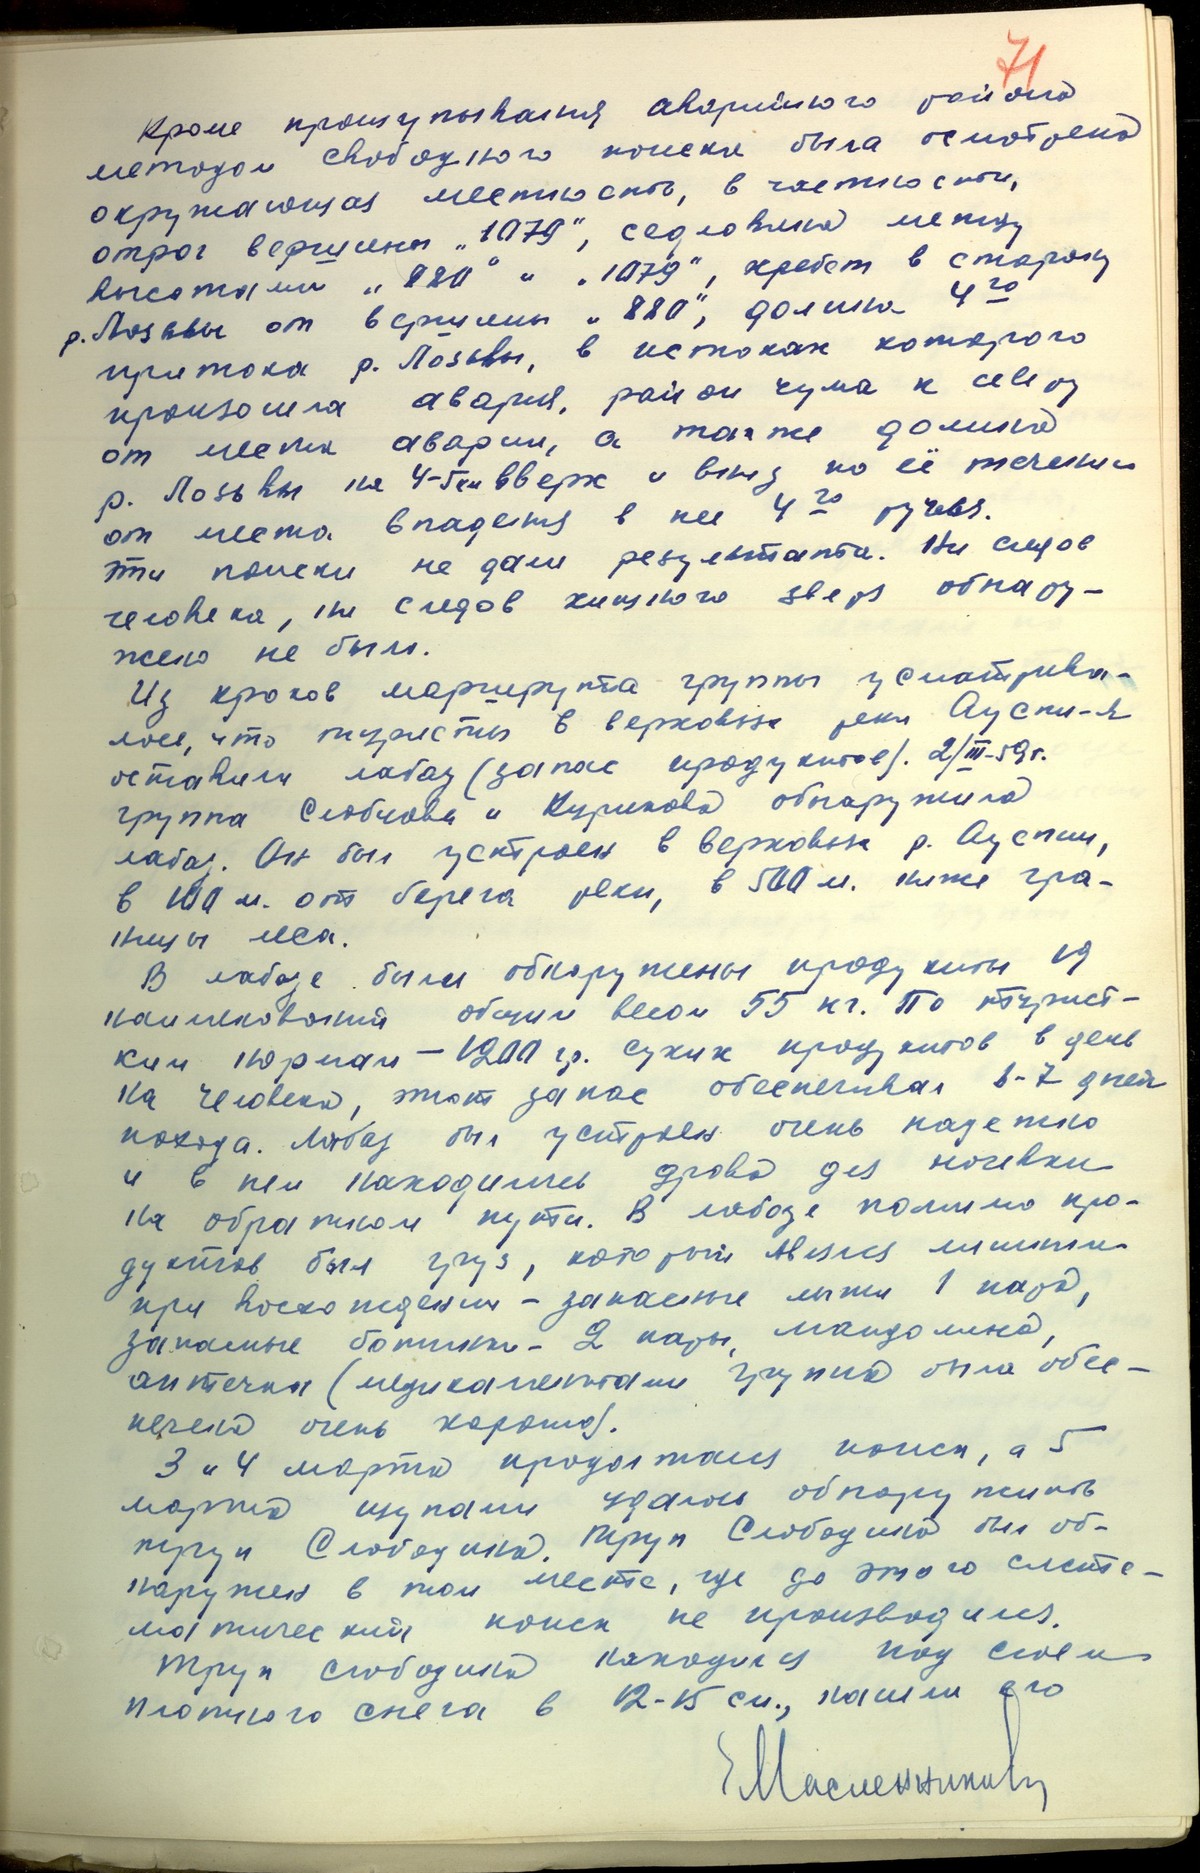 71
Кроме прощупывания аварийного района
методом свободного поиска была осмотрена
окружающая местность, в частности,
отрог вершины „1079“, седловина между
высотами „880“ и „1079“, хребет в сторону
р. Лозьвы от вершины „880“, долина 4го
притока р. Лозьвы, в истоках которого
произошла авария, район чума к северу
от места аварии, а также долина
р. Лозьвы на 4-5 км вверх и вниз по её течению
от места впадения в нее 4го ручья.
Эти поиски не дали результата. Ни следов
человека, ни следов хищного зверя обнару-
жено не было.
Из кроков маршрута группы усматрива-
лось, что туристы в верховьях реки Ауспи-я
оставили лабаз (запас продуктов). 2/III-59г.
группа Слобцова и Курикова обнаружила
лабаз. Он был устроен в верховьях р. Ауспии,
в 100 м. от берега реки, в 500 м. ниже гра-
ницы леса.
В лабазе были обнаружены продукты 19
наименований общим весом 55 кг. По турист-
ким нормам - 1200 гр. сухих продуктов в день
на человека, этот запас обеспечивал 6-7 дней
похода. Лабаз был устроен очень надежно
и в нем находились дрова для ночевки
на обратном пути. В лабазе помимо про-
дуктов был груз, который являлся лишним
при восхождении - запасные лыжи 1 пара,
запасные ботинки - 2 пары, мандолина,
аптечка (медикаментами группа была обес-
печена очень хорошо).
3 и 4 марта продолжался поиск, а 5
марта щупами удалось обнаружить
труп Слободина. Труп Слободина был об-
наружен в том месте, где до этого систе-
матический поиск не производился.
Труп Слободина находился под слоем
плотного снега в 12-15 см., нашли его
ЕМасленников